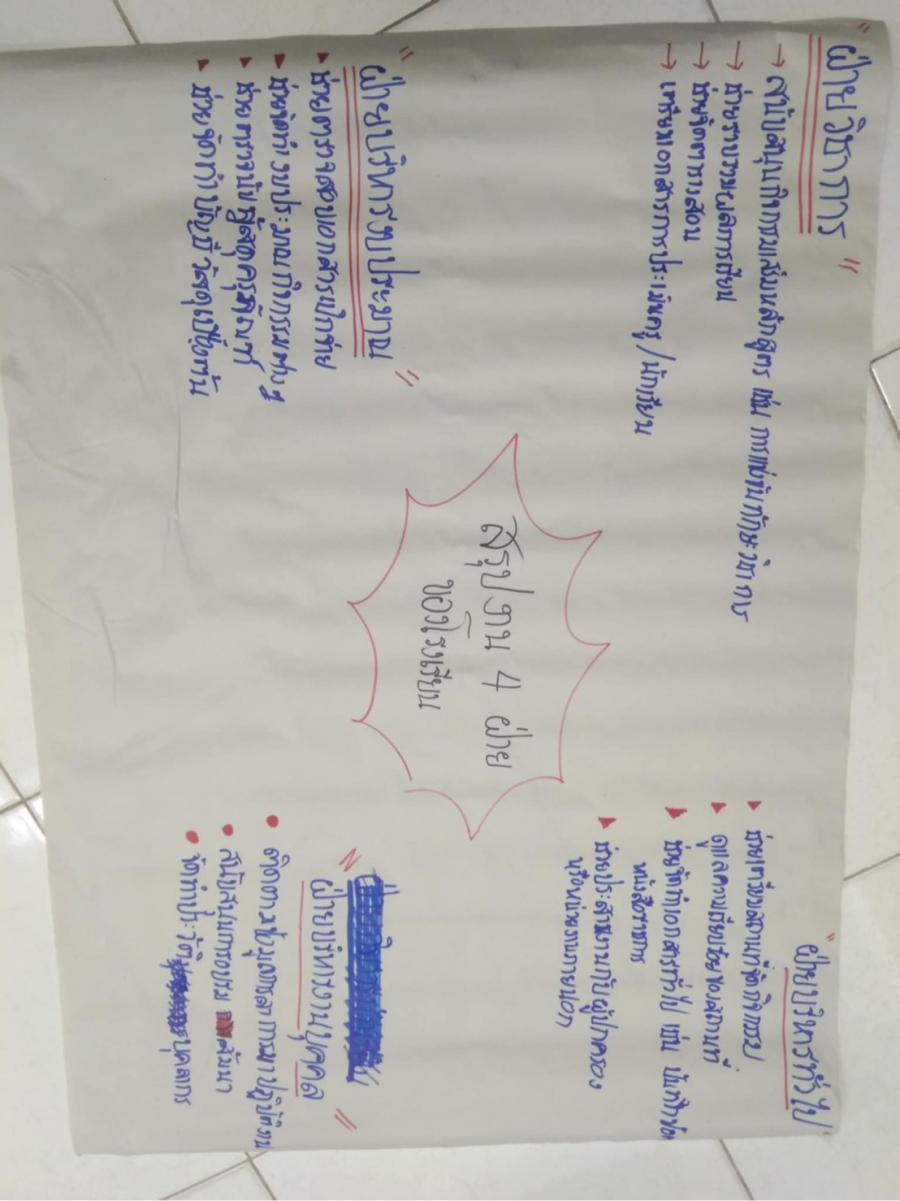 "ฝ่ายวิชาการ"
→ สนับสนุนกิจกรรมเสริมหลักสูตร เช่น การแข่งขันทักษะวิชาการ
→ ช่วยรวบรวมผลการเรียน
→ ช่วยจัดตารางสอน
→ เตรียมเอกสารการประเมินครู/นักเรียน
"ฝ่ายบริหารงบประมาณ"
▸ ช่วยตรวจสอบเอกสารเบิกจ่าย
▸ ช่วยจัดทำงบประมาณกิจกรรมต่าง ๆ
▸ ช่วยตรวจนับพัสดุครุภัณฑ์
▸ ช่วยจัดทำบัญชีวัสดุเบื้องต้น
สรุปงาน 4 ฝ่าย
ของโรงเรียน
"ฝ่ายบริหารทั่วไป"
▸ ช่วยเตรียมสถานที่จัดกิจกรรม
▸ ดูแลความเรียบร้อยของสถานที่
▸ ช่วยจัดทำเอกสารทั่วไป เช่น บันทึกข้อ
หนังสือราชการ
▸ ช่วยประสานงานกับผู้ปกครอง
หรือหน่วยงานภายนอก
"ฝ่ายบริหารงานบุคคล"
• ติดตามข้อมูลการลา การมาปฏิบัติงาน
• สนับสนุนการอบรม สัมมนา
• จัดทำประวัติบุคลากร